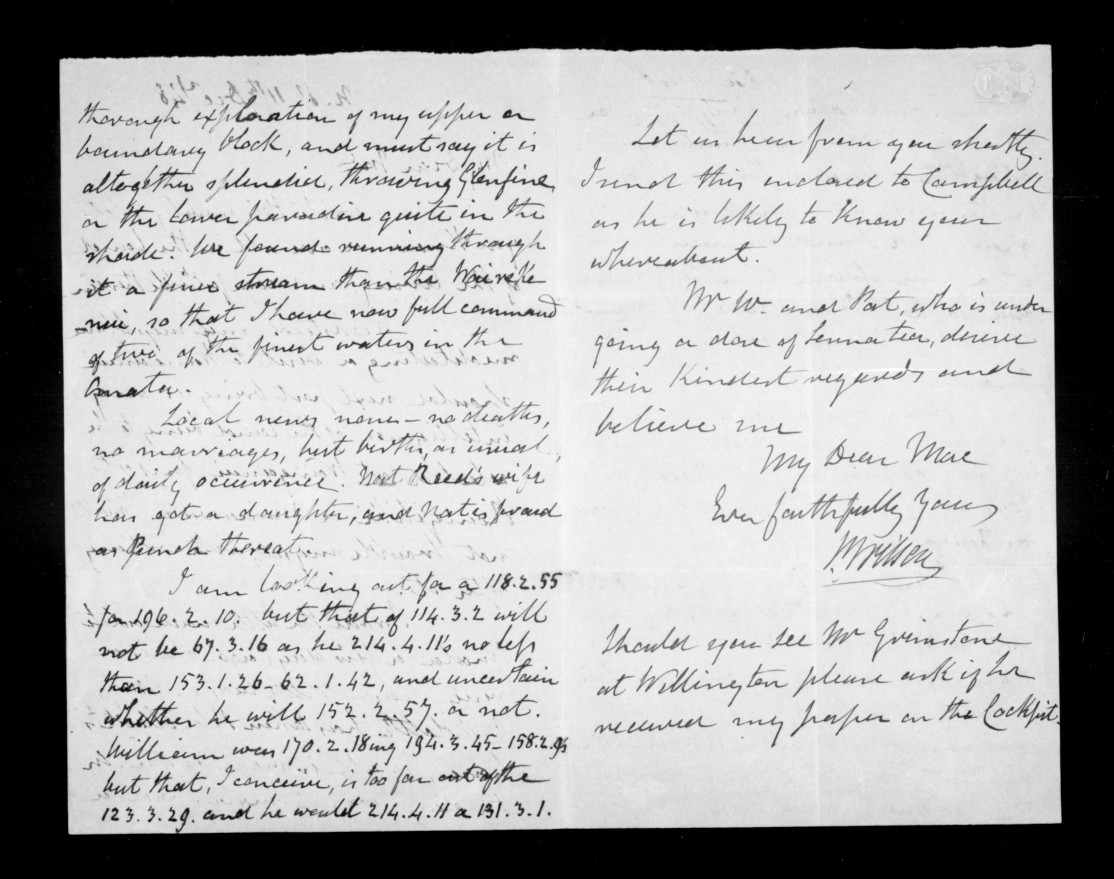 thorough exploration of my upper or
boundary block, and must say it is
altogether splendid, throwing Glenfine
or the Lower paradise quite in the
shade. We found running through
it a finer stream than the
so that I have now full command
of two of the finest waters in the

Local news none - no deaths,
no marriages, but births, as usual,
of daily occurrence. Nat Reed's wife
has got a daughter, and Nat is proud
as Punch thereat.
I am looking out for a 118.2.55
for 196.2.10. but that of 114.3.2 will
not be 67.3.16 as he 214.4.11's no less
than 153.1.26-62.1.42, and uncertain
whether he will 152.2.57. or not.
William was 170.2.18ing 194.3.45-158.2.9's
but that, I conceive, is too far out of the
123.3.29. and he would 214.4.11 a 131.3.1.
Let us hear from you shortly.
I send this enclosed to Campbell
as he is likely to know your
whereabout.
Mr W. and Pat, who is under
going a dose of Senna tea, desire
their kindest regards and
believe me
My Dear Mac
Ever faithfully Yours

Should you see Mr Grimstone
at Wellington please ask if he
received my paper on the Cockpit.